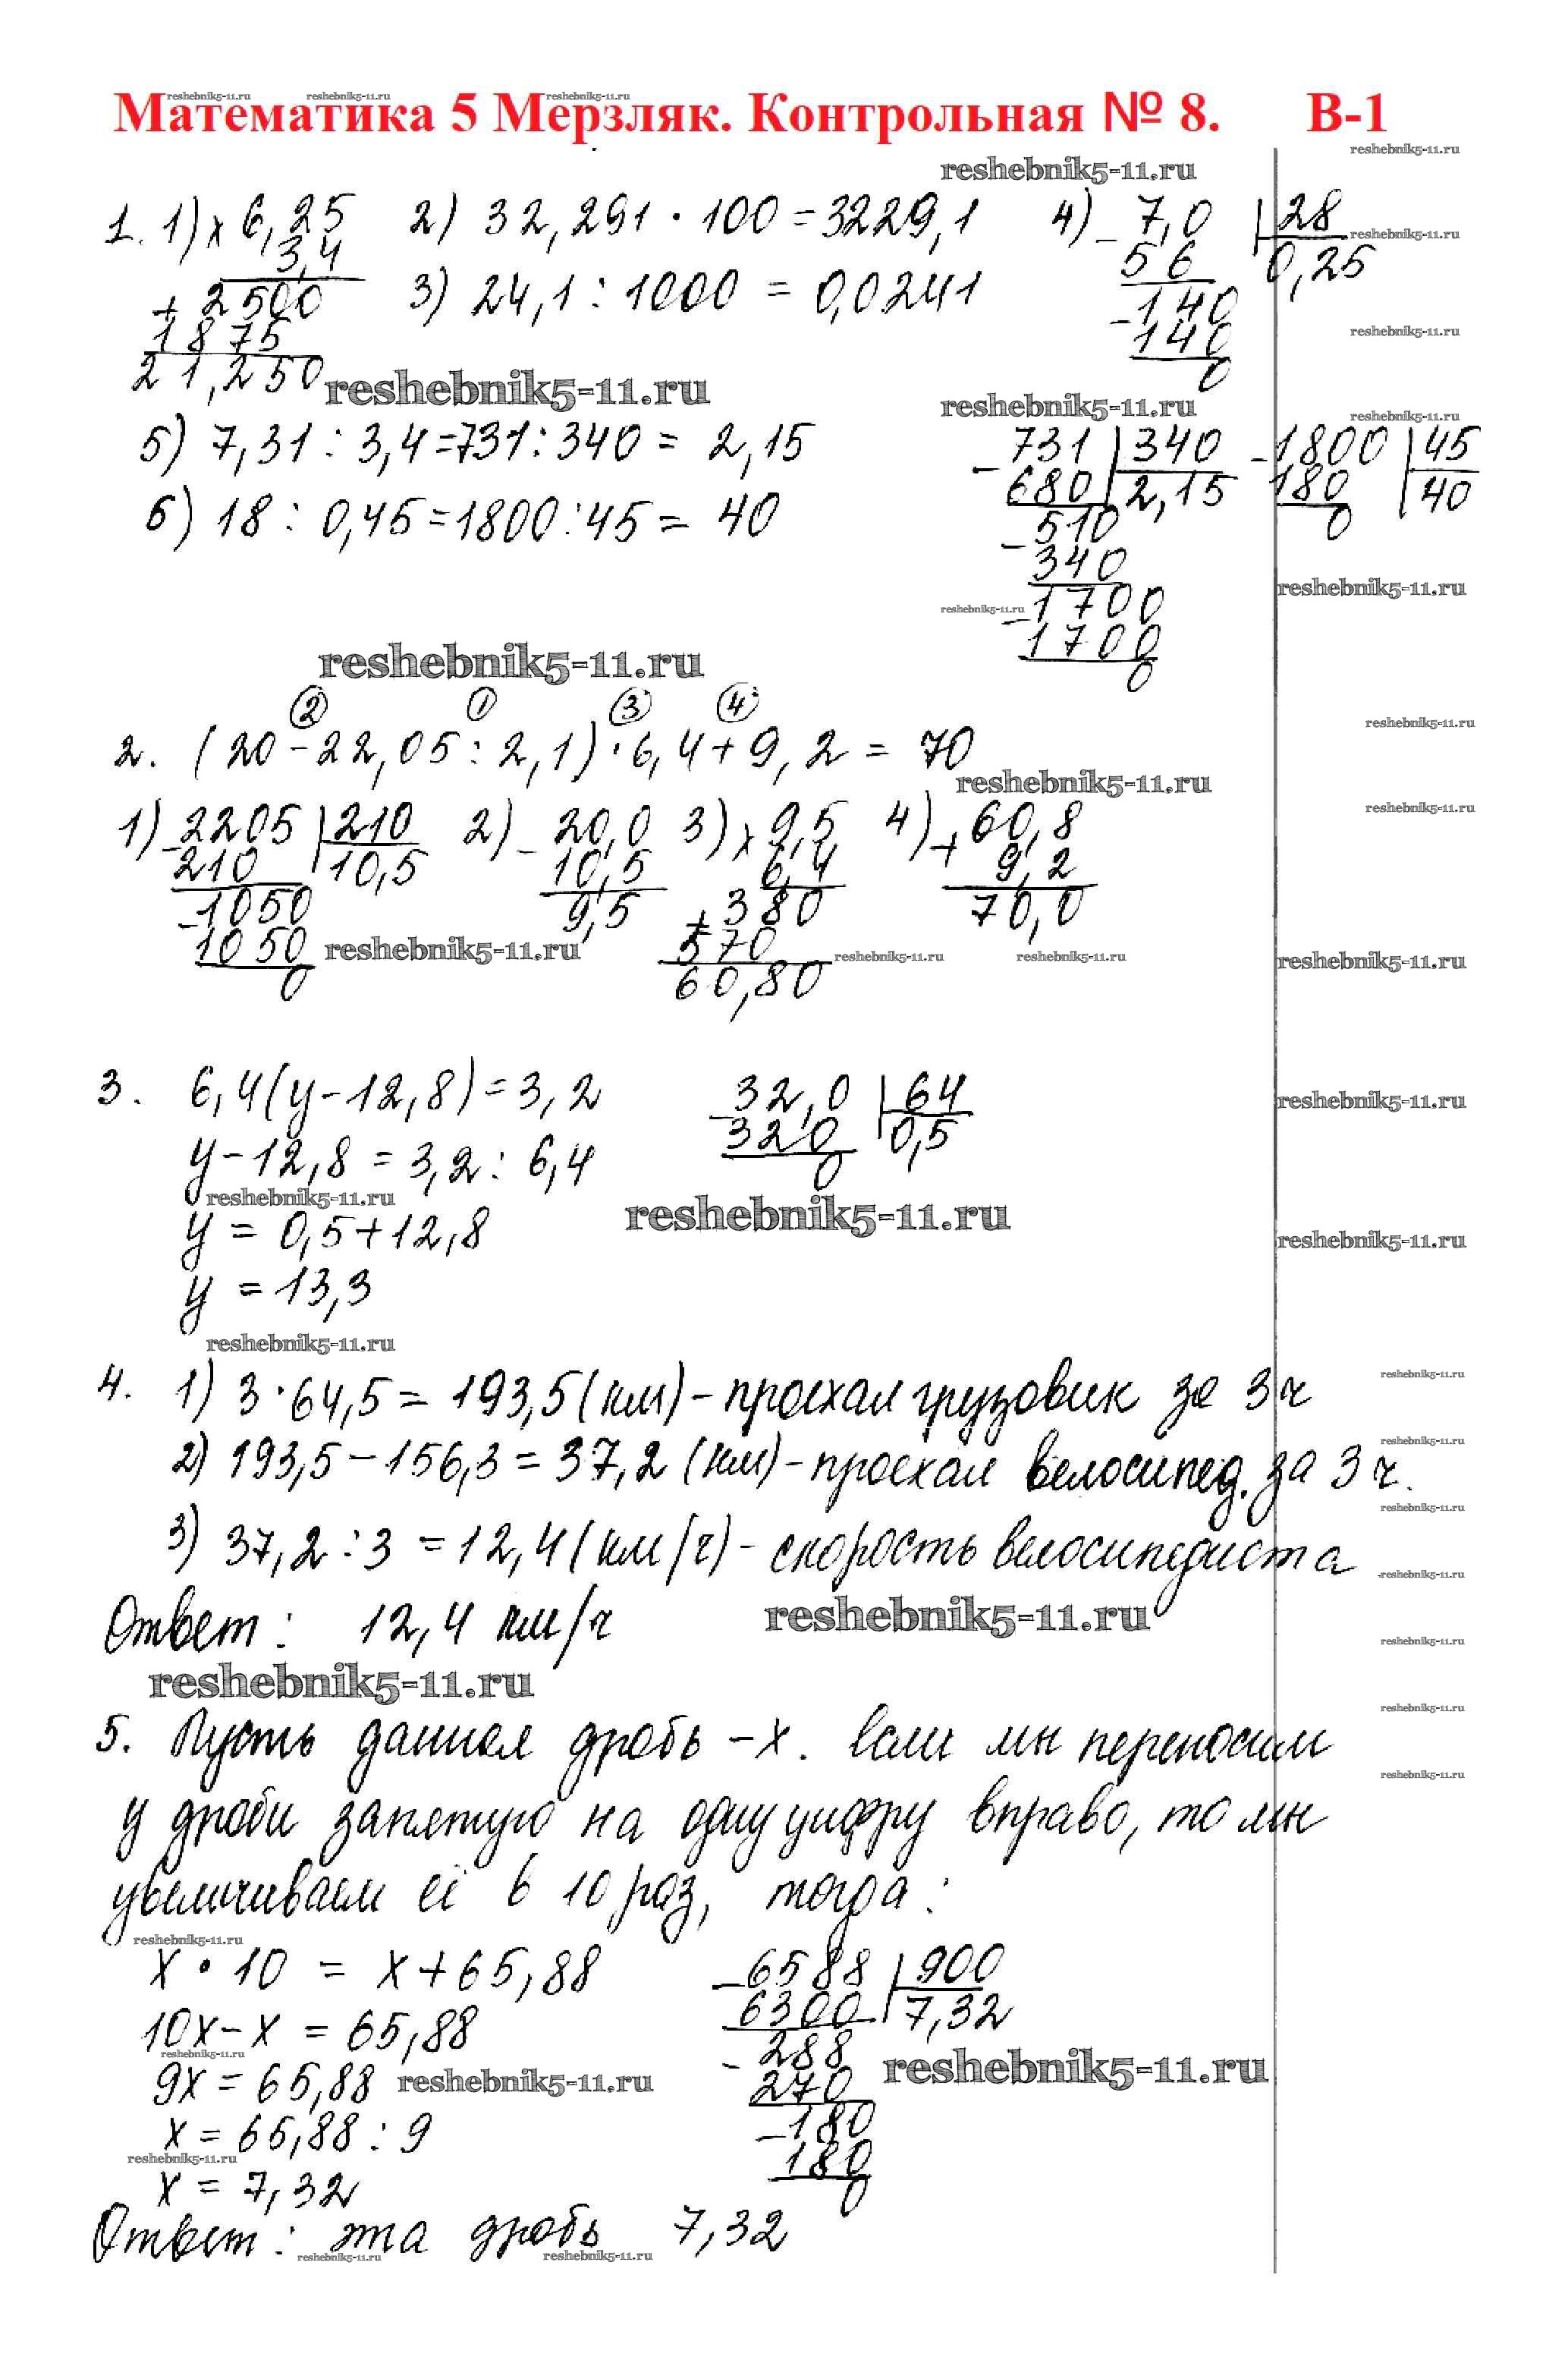 Математика 5 Мерзляк. Контрольная № 8. В-1
reshebnik5-11.ru
1. 1) × 6,25
3,4
+ 2500
1875
21,250
2) 32,291 · 100 = 3229,1
3) 24,1 : 1000 = 0,0241
4) - 7,0 | 28
56 0,25
-140
140
0
reshebnik5-11.ru
5) 7,31 : 3,4 = 731 : 340 = 2,15
6) 18 : 0,45 = 1800 : 45 = 40
- 731 | 340
680 2,15
- 510
340
- 1700
1700
0
- 1800 | 45
180 40
0
reshebnik5-11.ru
② ① ③ ④
2. (20 - 22,05 : 2,1) · 6,4 + 9,2 = 70
reshebnik5-11.ru
1) - 2205 | 210
210 10,5
- 1050
1050
0
2) - 20,0
10,5
9,5
3) × 9,5
6,4
+ 380
570
60,80
4) + 60,8
9,2
70,0
reshebnik5-11.ru
3. 6,4(y - 12,8) = 3,2
y - 12,8 = 3,2 : 6,4
y = 0,5 + 12,8
y = 13,3
- 32,0 | 64
320 0,5
0
reshebnik5-11.ru
4. 1) 3 · 64,5 = 193,5 (км) - проехал грузовик за 3 ч
2) 193,5 - 156,3 = 37,2 (км) - проехал велосипед. за 3 ч.
3) 37,2 : 3 = 12,4 (км/ч) - скорость велосипедиста
Ответ: 12,4 км/ч
reshebnik5-11.ru
5. Пусть данная дробь - х. Если мы переносим
у дроби запятую на одну цифру вправо, то мы
увеличиваем её в 10 раз, тогда:
х · 10 = х + 65,88
10х - х = 65,88
9х = 65,88
х = 65,88 : 9
х = 7,32
- 6588 | 900
6300 7,32
- 288
270
- 180
180
0
reshebnik5-11.ru
Ответ: эта дробь 7,32